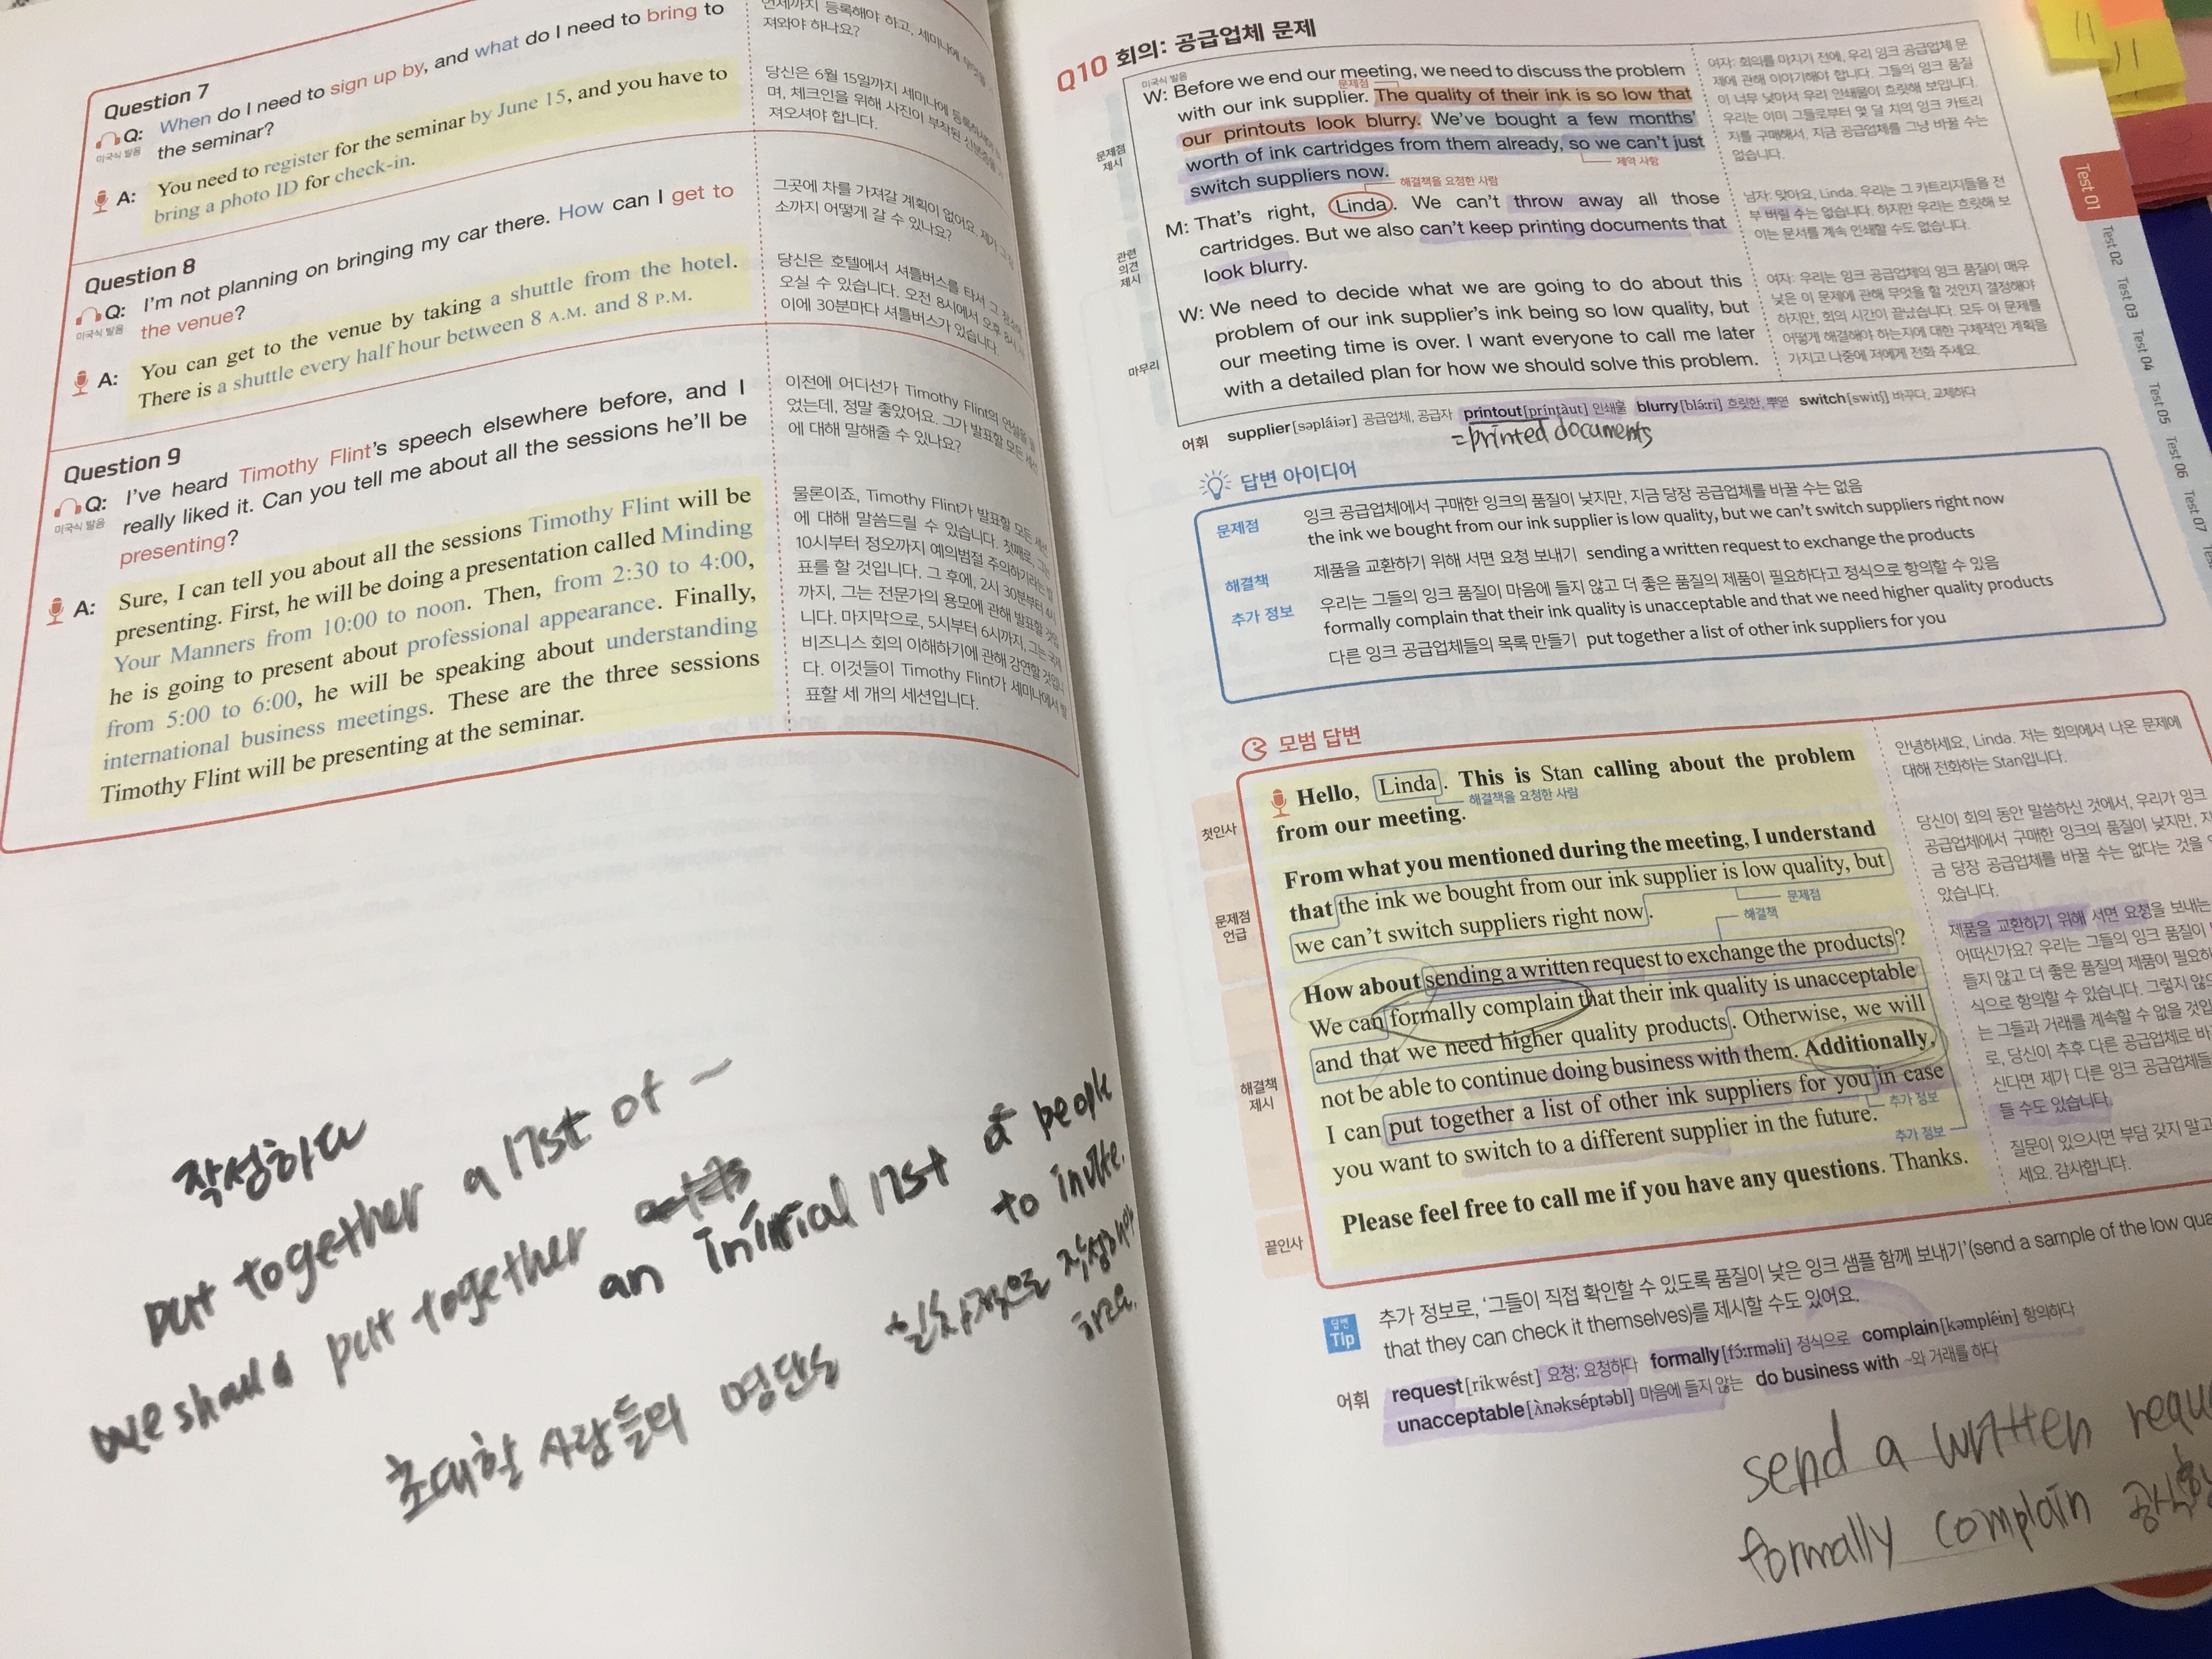 져와야 하나요?
Question 7
Q: When do I need to sign up by, and what do I need to bring to
the seminar?
미국식 발음
A: You need to register for the seminar by June 15, and you have to
bring a photo ID for check-in.
당신은 6월 15일까지 세미나에
며, 체크인을 위해 사진이 부착된
져오셔야 합니다.
Question 8
Q: I'm not planning on bringing my car there. How can I get to
the venue?
미국식 발음
A: You can get to the venue by taking a shuttle from the hotel.
There is a shuttle every half hour between 8 A.M. and 8 P.M.
그곳에 차를 가져갈 계획이 없어요. 제가 그
소까지 어떻게 갈 수 있나요?
당신은 호텔에서 셔틀버스를 타서 그 장소에
오실 수 있습니다. 오전 8시에서 오후 8시
이에 30분마다 셔틀버스가 있습니다.
Question 9
Q: I've heard Timothy Flint's speech elsewhere before, and I
really liked it. Can you tell me about all the sessions he'll be
presenting?
미국식 발음
A: Sure, I can tell you about all the sessions Timothy Flint will be
presenting. First, he will be doing a presentation called Minding
Your Manners from 10:00 to noon. Then, from 2:30 to 4:00,
he is going to present about professional appearance. Finally,
from 5:00 to 6:00, he will be speaking about understanding
international business meetings. These are the three sessions
Timothy Flint will be presenting at the seminar.
이전에 어디선가 Timothy Flint의 연설을
었는데, 정말 좋았어요. 그가 발표할 모든 세션
에 대해 말해줄 수 있나요?
물론이죠, Timothy Flint가 발표할 모든 세션
에 대해 말씀드릴 수 있습니다. 첫째로, 그는
10시부터 정오까지 예의범절 주의하기라는 발
표를 할 것입니다. 그 후에, 2시 30분부터 4시
까지, 그는 전문가의 용모에 관해 발표할
니다. 마지막으로, 5시부터 6시까지, 그는 국제
비즈니스 회의 이해하기에 관해 강연할 것입니
다. 이것들이 Timothy Flint가 세미나에서 발
표할 세 개의 세션입니다.
작성하다
put together a list of ~
we should put together
an initial list of people
to invite.
초대할 사람들의 명단을 일차적으로 작성해야
하고요.
Q10 회의: 공급업체 문제
미국식 발음
W: Before we end our meeting, we need to discuss the problem
문제점
with our ink supplier. The quality of their ink is so low that
our printouts look blurry. We've bought a few months'
worth of ink cartridges from them already, so we can't just
제약 사항
switch suppliers now.
해결책을 요청한 사람
M: That's right, Linda. We can't throw away all those
cartridges. But we also can't keep printing documents that
look blurry.
W: We need to decide what we are going to do about this
problem of our ink supplier's ink being so low quality, but
our meeting time is over. I want everyone to call me later
with a detailed plan for how we should solve this problem.
문제점
제시
관련
의견
제시
마무리
여자: 회의를 마치기 전에, 우리 잉크 공급업체 문
제에 관해 이야기해야 합니다. 그들의 잉크 품질
이 너무 낮아서 우리 인쇄물이 흐릿해 보입니다.
우리는 이미 그들로부터 몇 달 치의 잉크 카트리
지를 구매해서, 지금 공급업체를 그냥 바꿀 수는
없습니다.
남자: 맞아요, Linda. 우리는 그 카트리지들을 전
부 버릴 수는 없습니다. 하지만 우리는 흐릿해 보
이는 문서를 계속 인쇄할 수도 없습니다.
여자: 우리는 잉크 공급업체의 잉크 품질이 매우
낮은 이 문제에 관해 무엇을 할 것인지 결정해야
하지만, 회의 시간이 끝났습니다. 모두 이 문제를
어떻게 해결해야 하는지에 대한 구체적인 계획을
가지고 나중에 저에게 전화 주세요.
어휘 supplier[səpláiər] 공급업체, 공급자 printout[príntàut] 인쇄물 blurry[blə́:ri] 흐릿한, 뿌연 switch[switʃ] 바꾸다, 교체하다
=printed documents
답변 아이디어
문제점 잉크 공급업체에서 구매한 잉크의 품질이 낮지만, 지금 당장 공급업체를 바꿀 수는 없음
the ink we bought from our ink supplier is low quality, but we can't switch suppliers right now
해결책 제품을 교환하기 위해 서면 요청 보내기 sending a written request to exchange the products
추가 정보 우리는 그들의 잉크 품질이 마음에 들지 않고 더 좋은 품질의 제품이 필요하다고 정식으로 항의할 수 있음
formally complain that their ink quality is unacceptable and that we need higher quality products
다른 잉크 공급업체들의 목록 만들기 put together a list of other ink suppliers for you
모범 답변
첫인사
Hello, Linda. This is Stan calling about the problem
해결책을 요청한 사람
from our meeting.
문제점
언급
From what you mentioned during the meeting, I understand
that the ink we bought from our ink supplier is low quality, but
문제점
we can't switch suppliers right now.
해결책
해결책
제시
How about sending a written request to exchange the products?
We can formally complain that their ink quality is unacceptable
and that we need higher quality products. Otherwise, we will
not be able to continue doing business with them. Additionally,
I can put together a list of other ink suppliers for you in case
추가 정보
you want to switch to a different supplier in the future.
추가 정보
끝인사
Please feel free to call me if you have any questions. Thanks.
안녕하세요, Linda. 저는 회의에서 나온 문제에
대해 전화하는 Stan입니다.
당신이 회의 동안 말씀하신 것에서, 우리가 잉크
공급업체에서 구매한 잉크의 품질이 낮지만, 지
금 당장 공급업체를 바꿀 수는 없다는 것을
았습니다.
제품을 교환하기 위해 서면 요청을 보내는
어떠신가요? 우리는 그들의 잉크 품질이
들지 않고 더 좋은 품질의 제품이 필요하
식으로 항의할 수 있습니다. 그렇지 않으
는 그들과 거래를 계속할 수 없을 것입
로, 당신이 추후 다른 공급업체로 바
신다면 제가 다른 잉크 공급업체들
들 수도 있습니다.
질문이 있으시면 부담 갖지 말고
세요. 감사합니다.
답변
Tip
추가 정보로, '그들이 직접 확인할 수 있도록 품질이 낮은 잉크 샘플 함께 보내기'(send a sample of the low
that they can check it themselves)를 제시할 수도 있어요.
어휘 request[rikwést] 요청; 요청하다 formally[fɔ́:rməli] 정식으로 complain[kəmpléin] 항의하다
unacceptable[ʌ̀nəkséptəbl] 마음에 들지 않는 do business with ~와 거래를 하다
send a written
formally complain
Test 01
Test 02
Test 03
Test 04
Test 05
Test 06
Test 07
11
11